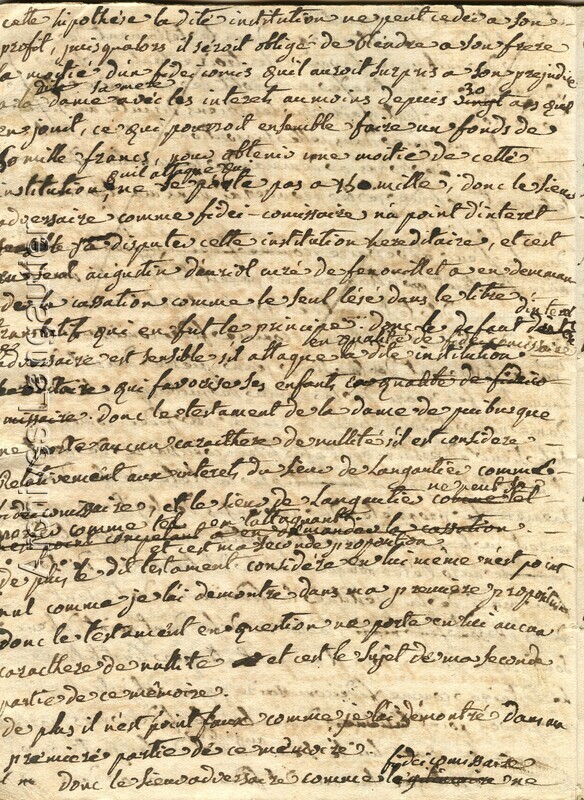 cette hipothése la dite institution ne peut cedér a son
profit, puisqualors il seroit obligé de rendre a son frere
la moitié dun fideicomis quil auroit surpris a son prejudice
dite sa mere
a la dame avec les interets au moins depuis vingt ans quil
30
en jouit, ce qui pourroit ensemble faire un fonds de
mille francs, pour obtenir une moitié de cette
quil attaque
institution, ne se porte pas a mille, donc le sieur
adversaire comme fidei-comissaire na point d'interet
disputer cette institution hereditaire, et cest
seul augustin curé de fenouillet a en deman
der la cassation comme le seul lésé dans le titre
d'interet
transitif qui en fut le principe. donc le defaut
en qualité de fideicomissaire
adversaire est sensible sil attaque la dite institution
hereditaire qui favorise ses enfants en qualité de fideico
missaire. donc le testament de la dame de puibusque
ne porte aucun caracthere de nullité sil est considere
Relativement aux interets du sieur de Langautier comme
ne peut pas
fideicomissaire, et le sieur de Langautier comme tel
comme tel en demander la cassation
et cest ma seconde proposition
de plus le dit testament consideré en lui même n'est point
nul comme je lai demontré dans ma premiere proposition
donc le testament en question ne porte en lui aucun
caracthere de nullité et cest le sujet de ma seconde
partie de ce mémoire.
de plus il n'est point faux comme je lai démontré dans ma
premiere partie de ce mémoire.
fideicomissaire
donc le sieur adversaire comme ne
Archives Langautier